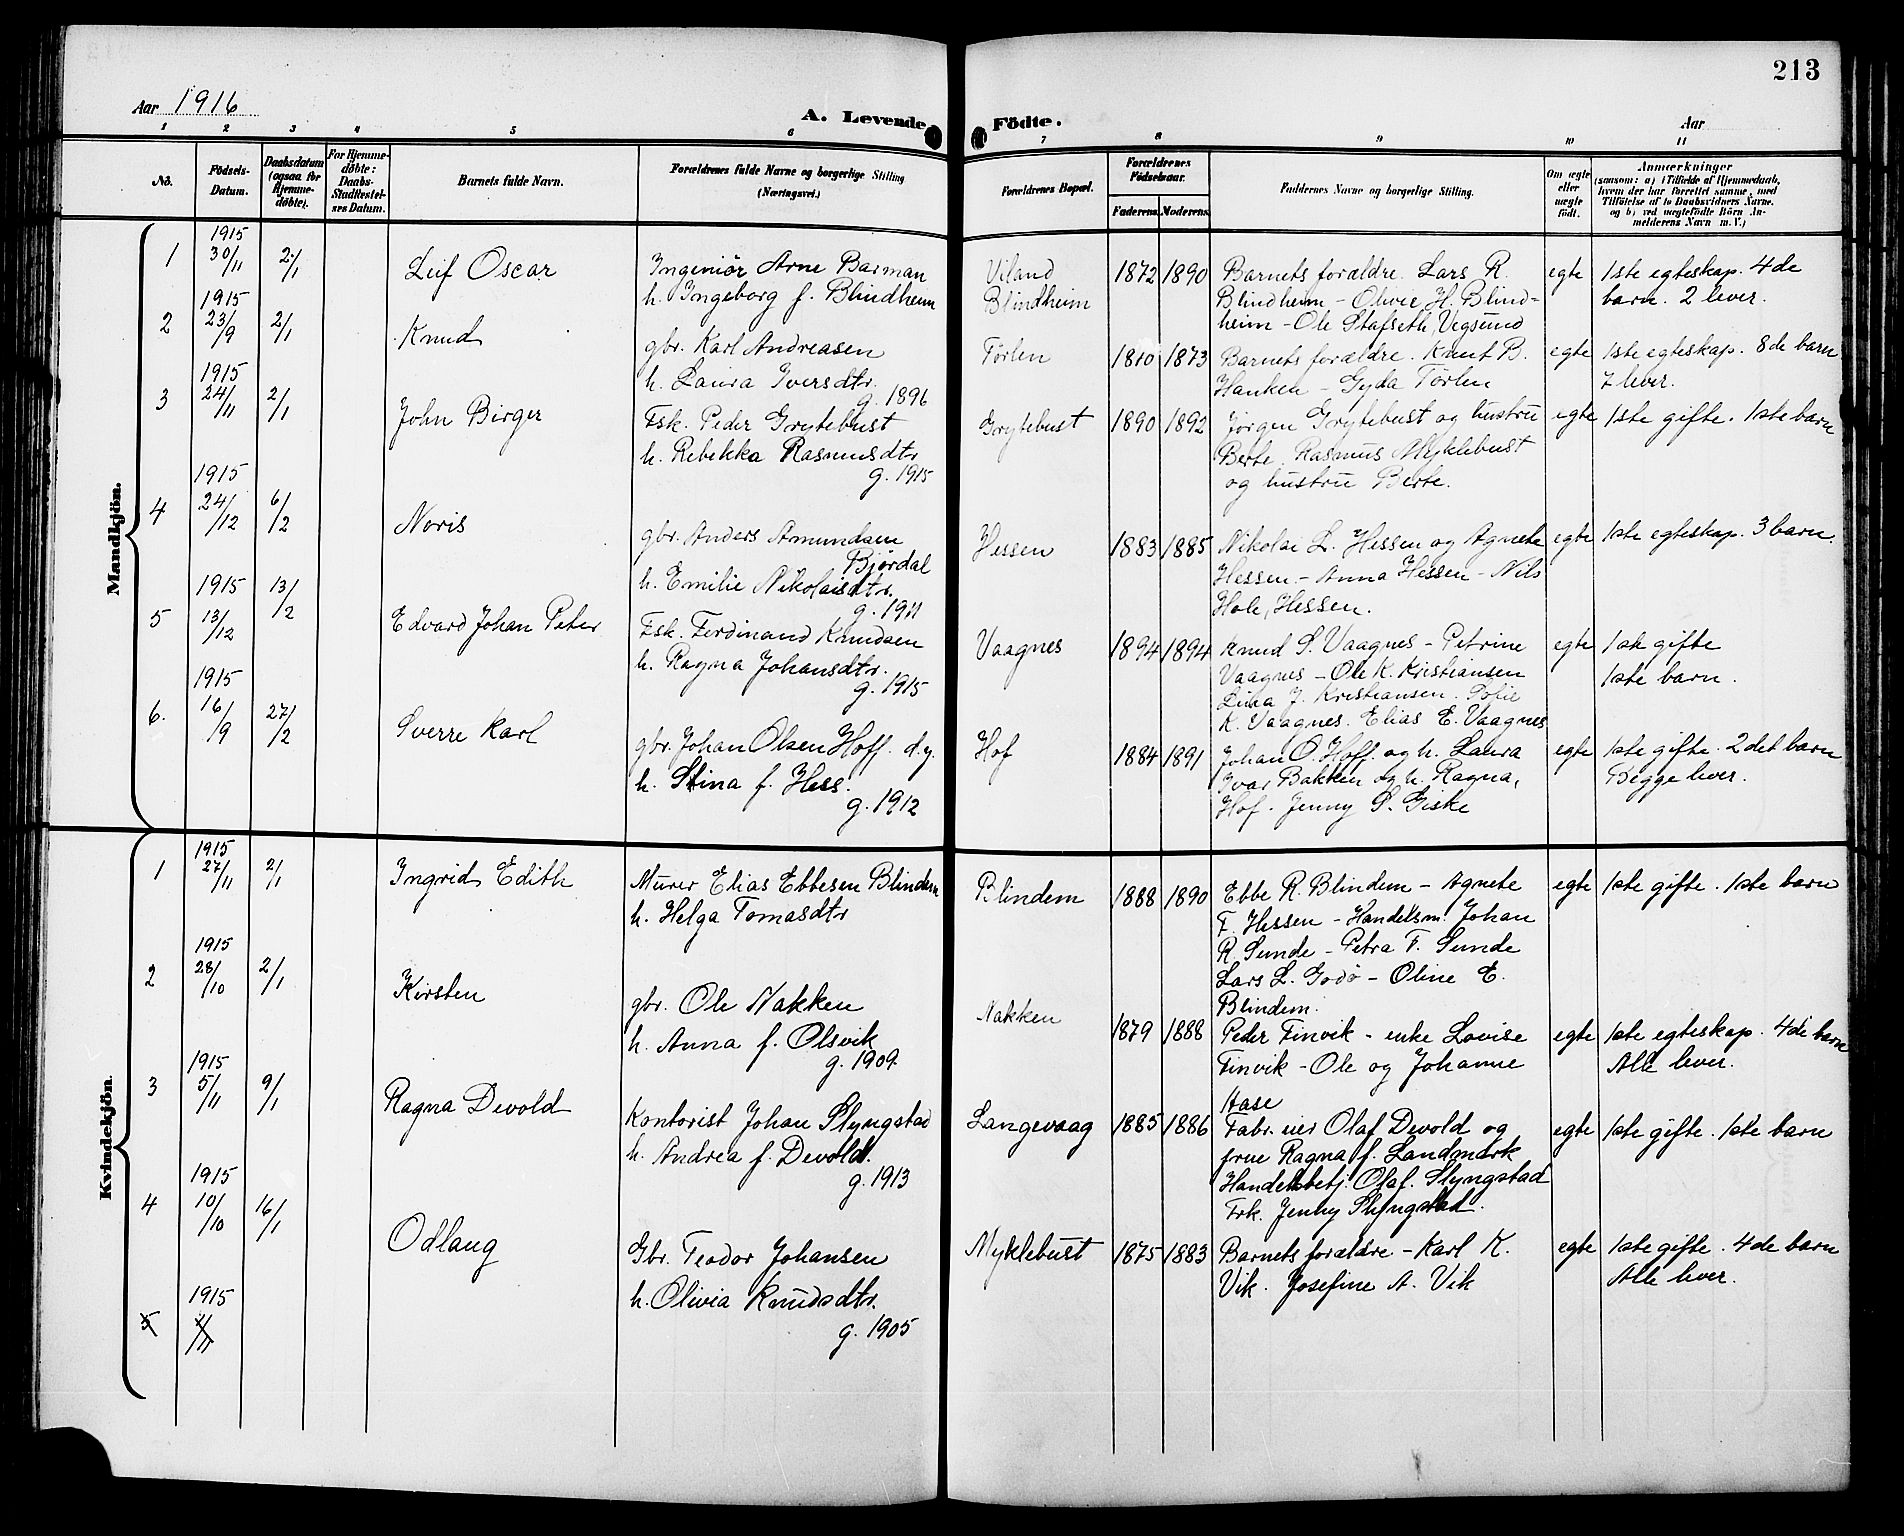 213
Aar 1916
A. Levende Födte.
Aar
1 2 3 4 5 6 7 8 9 10 11
No.
Födsels-Datum.
Daabsdatum (ogsaa for Hjemme-döbte).
For Hjemme-döbte: Daabs-Stadfæstel-ses Datum.
Barnets fulde Navn.
Forældrenes fulde Navne og borgerlige Stilling (Næringsvei.)
Forældrenes Bopæl.
Forældrenes Födselsaar.
Faderens. Moderens.
Faddernes Navne og borgerlige Stilling.
Om ægte eller uægte födt.
Anmærkninger
(saasom: a) i Tilfælde af Hjemmedaab,
hvem der har forrettet samme, med
Tilföielse af to Daabsvidners Navne.
og b) ved uægtefödte Börn An-
melderens Navn m. V.)
Mandkjön.
1 1915 30/11 2/1 Leif Oscar
Ingeniör Arne Barman
h. Ingeborg f. Blindheim
Viland
Blindheim
1872 1890
Barnets forældre. Lars R.
Blindheim - Oliver H. Blind-
heim - Ole Stafseth, Vegsund
egte
1ste egteskap. 4de
barn. 2 lever.
2 1915 23/9 2/1 Knud
gbr. Karl Andreasen
h. Laura Iversdtr.
g. 1896
Tørlen
1870 1873
Barnets forældre. Knut B.
Hanken - Gyda Tørlen
egte
1ste egteskap. 8de barn
7 lever.
3 1915 24/11 2/1 John Birger
Fsk. Peder Grytebust
h. Rebekka Rasmusdtr
g. 1915
Grytebust
1890 1892
Jörgen Grytebust og hustru
Berte. Rasmus Myklebust
og hustru Berte.
egte
1ste gifte. 1ste barn
4 1915 24/12 6/2 Noris
gbr. Anders Amundsen
Bjørdal
h. Emilie Nikolaisdtr.
g. 1911
Hessen
1883 1885
Nikolai L. Hessen og Agnete
Hessen - Anna Hessen - Nils
Hole, Hessen.
egte
1ste egteskap. 3 barn.
5 1915 13/12 13/2 Edvard Johan Peter
Fsk. Ferdinand Knudsen
h. Ragna Johansdtr.
g. 1915
Vaagnes
1894 1894
Knud S. Vaagnes - Petrine
Vaagnes - Ole K. Kristiansen
Lina J. Kristiansen.
K. Vaagnes. Elias E. Vaagnes
egte
1ste gifte
1ste barn.
6. 1915 16/9 27/2 Sverre Karl
gbr. Johan Olsen Hoff. d.y.
h. Stina f. Hess.
g. 1912
Hof
1884 1891
Johan O. Hoff. og h. Laura
Ivar Bakken og h. Ragna,
Hof. Jenny S. Giske
egte
1ste gifte. 2det barn
Begge lever.
Kvindekjön.
1 1915 27/11 2/1 Ingrid Edith
Murer Elias Ebbesen Blindem
h. Helga Tomasdtr
Blindem
1888 1890
Ebbe R. Blindem - Agnete
F. Hessen - Handelsm. Johan
R. Sunde - Petra F. Sunde
Lars L. Godö - Oline E.
Blindem.
egte
1ste gifte. 1ste barn
2 1915 28/10 2/1 Kirsten
gbr. Ole Nakken
h. Anna f. Olsvik
g. 1909
Nakken
1879 1888
Peder Finvik - enke Lovise
Finvik - Ole og Johanne
Aase
egte
1ste egteskap. 4de barn
Alle lever.
3 1915 5/11 9/1 Ragna Devold
Kontorist Johan Slyngstad
h. Andrea f. Devold.
g. 1913
Langevaag
1885 1886
Fabr. eier Olaf Devold og
frue Ragna f. Landmark
Handelsbetj. Olaf. Slyngstad
Frk. Jenny Slyngstad.
egte
1ste gifte. 1ste barn
4 1915 10/10 16/1 Odlaug
Gbr. Teodor Johansen
h. Olivia Knudsdtr.
g. 1905
Myklebust
1875 1883
Barnets forældre - Karl K.
Vik. Josefine A. Vik
egte
1ste gifte. 4de barn
Alle lever.
5 1915